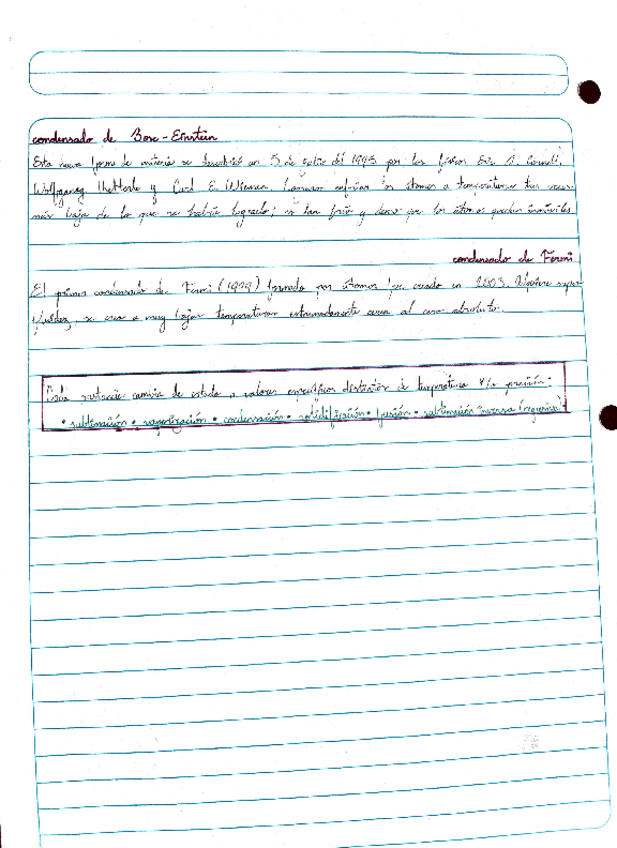 condensado de Bose-Einstein
Esta nueva forma de materia se descubrió en 5 de del 1995 por los físicos Eric A. Cornell,
Wolfgang Ketterle y Carl E. Wieman. Lograron enfriar los átomos a temperaturas tres veces
más baja de lo que se había logrado; es tan frío y denso que los átomos quedan inmóviles
condensado de Fermi
El primer condensado de Fermi (1999) formado por átomos fue creado en 2003. Adquiere super
fluidez, se crea a muy bajas temperaturas extremadamente cerca al cero absoluto.
Cada sustancia cambia de estado a valores específicos distintos de temperatura y/o presión:
• sublimación • vaporización • condensación • solidificación • fusión • sublimación inversa (regresiva)